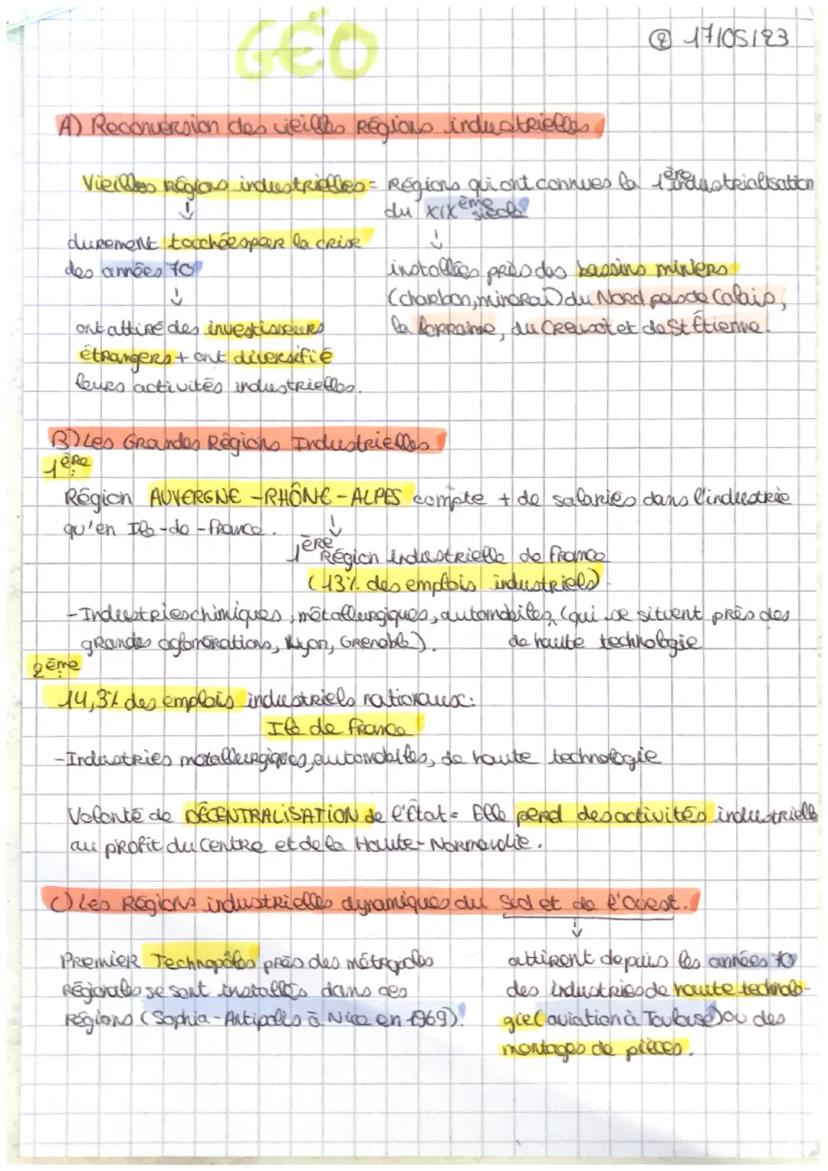 GÉO
② 17/05/23
A) Reconversion des vieilles Régions industrielles
Vieilles régions industrielles = Régions qui ont connues la 1ère industrialisation
du XIXème siècle
↓
durement touchées par la crise
des années 70
↓
ont attiré des investisseurs
étrangers + ont diversifié
leurs activités industrielles.
↓
installées près des bassins miniers
(charbon, minerai) du Nord pas de Calais,
la Lorraine, du Creusot et de St Étienne.
B) Les Grandes Régions Industrielles
1ère
Région AUVERGNE - RHÔNE - ALPES compte + de salariés dans l'industrie
qu'en Ile - de - France.
↓
1ère Région industrielle de France
(13% des emplois industriels)
- Industries chimiques, métallurgiques, automobiles, (qui se situent près des
grandes aglomérations, Lyon, Grenoble).
de haute technologie
2ème
14,3% des emplois industriels nationaux:
Ile de France
- Industries metallurgiques, automobiles, de haute technologie
Volonté de DÉCENTRALISATION de l'État = Elle perd des activités industrielle
au profit du Centre et de la Haute - Normandie.
C) Les Régions industrielles dynamiques du Sud et de l'Ouest.
Premier Technopôles près des métropoles
Régionales se sont installés dans ces
Régions (Sophia - Antipolis à Nice en 1969).
↓
attirent depuis les années 70
des industries de haute technolo-
gie (aviation à Toulouse) ou des
montages de pièces.